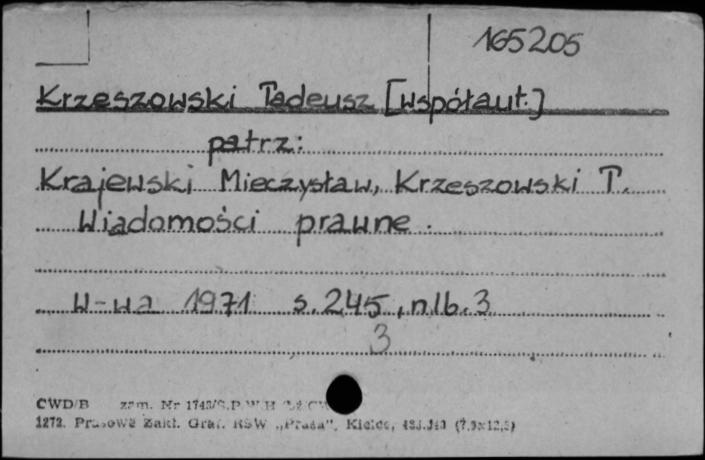 165205
Krzeszowski Tadeusz [współaut.]
patrz:
Krajewski Mieczysław, Krzeszowski T.
Wiadomości prawne.
W-wa 1971 s. 245, nlb. 3
3
CWD/B zam. Nr
1272. Prasowe Zakł. Graf. RSW „Prasa", Kielce,